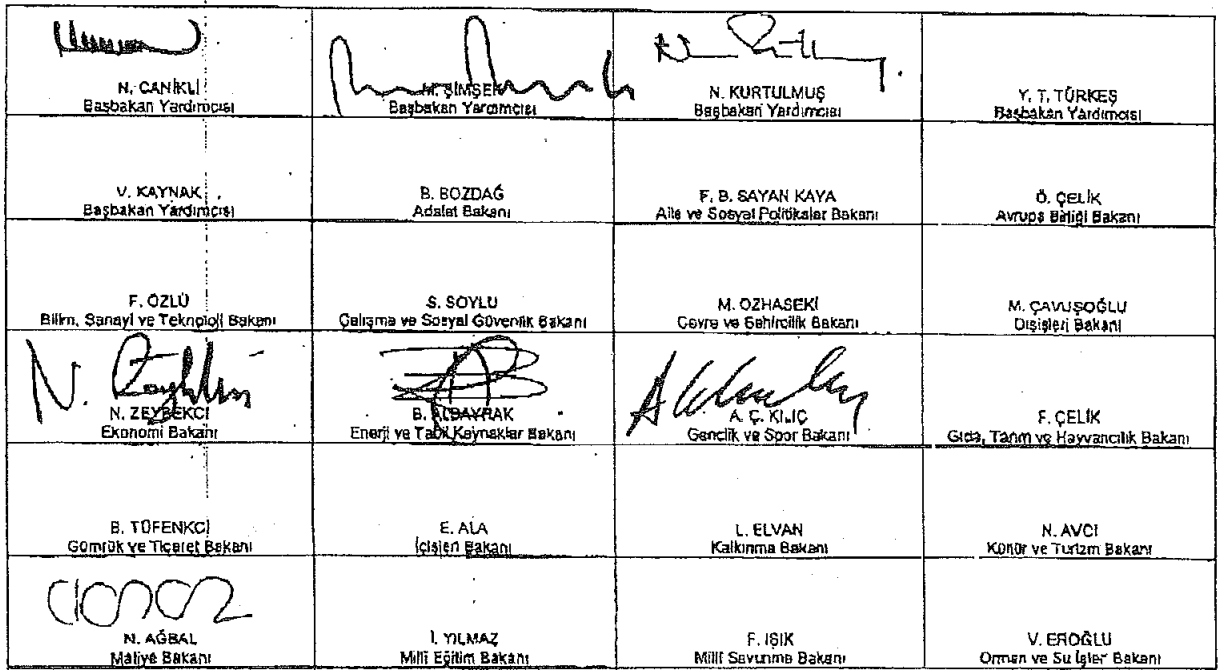 N. CANİKLİ
Başbakan Yardımcısı
M. ŞİMŞEK
Başbakan Yardımcısı
N. KURTULMUŞ
Başbakan Yardımcısı
Y. T. TÜRKEŞ
Başbakan Yardımcısı
V. KAYNAK
Başbakan Yardımcısı
B. BOZDAĞ
Adalet Bakanı
F. B. SAYAN KAYA
Aile ve Sosyal Politikalar Bakanı
Ö. ÇELİK
Avrupa Birliği Bakanı
F. ÖZLÜ
Bilim, Sanayi ve Teknoloji Bakanı
S. SOYLU
Çalışma ve Sosyal Güvenlik Bakanı
M. ÖZHASEKİ
Çevre ve Şehircilik Bakanı
M. ÇAVUŞOĞLU
Dışişleri Bakanı
N. ZEYBEKCİ
Ekonomi Bakanı
B. ALBAYRAK
Enerji ve Tabii Kaynaklar Bakanı
A. Ç. KILIÇ
Gençlik ve Spor Bakanı
F. ÇELİK
Gıda, Tarım ve Hayvancılık Bakanı
B. TÜFENKCİ
Gümrük ve Ticaret Bakanı
E. ALA
İçişleri Bakanı
L. ELVAN
Kalkınma Bakanı
N. AVCI
Kültür ve Turizm Bakanı
N. AĞBAL
Maliye Bakanı
İ. YILMAZ
Milli Eğitim Bakanı
F. IŞIK
Millî Savunma Bakanı
V. EROĞLU
Orman ve Su İşleri Bakanı